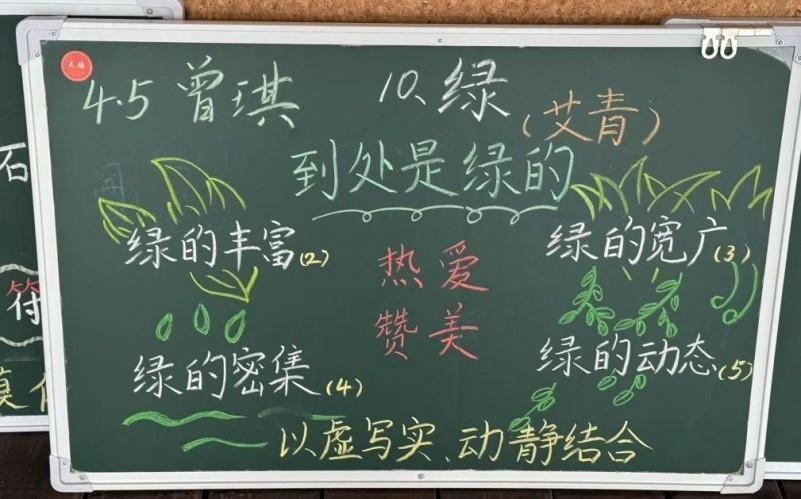 4.5 曾琪
10、绿
(艾青)
到处是绿的
绿的丰富(2)
绿的宽广(3)
热爱
赞美
绿的密集(4)
绿的动态(5)
以虚写实、动静结合
石
符